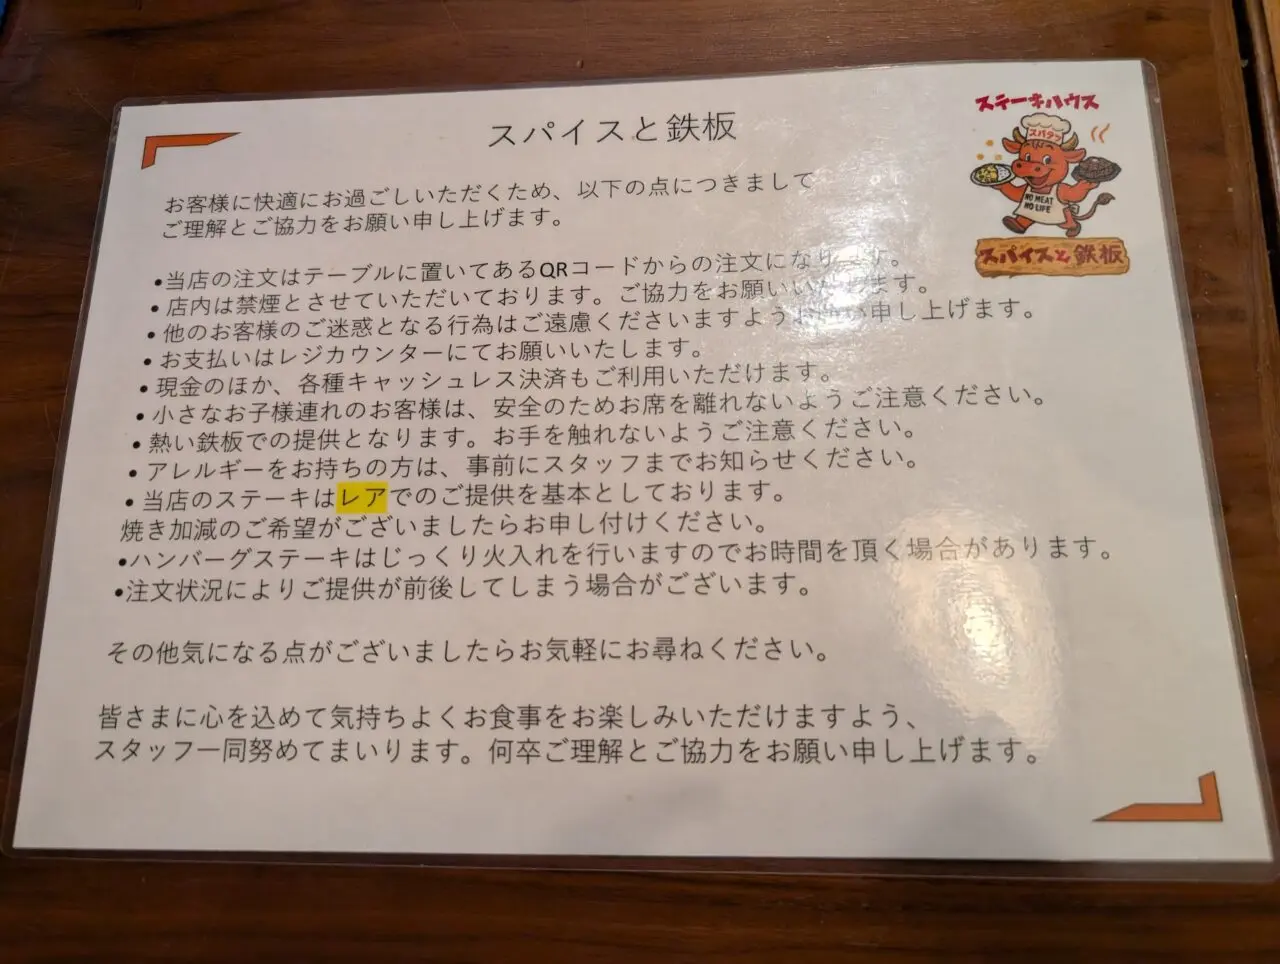 スパイスと鉄板
ステーキハウス
スパテツ
NO MEAT
NO LIFE
スパイスと鉄板
お客様に快適にお過ごしいただくため、以下の点につきまして
ご理解とご協力をお願い申し上げます。
•当店の注文はテーブルに置いてあるQRコードからの注文になります。
•店内は禁煙とさせていただいております。ご協力をお願いいたします。
•他のお客様のご迷惑となる行為はご遠慮くださいますようお願い申し上げます。
•お支払いはレジカウンターにてお願いいたします。
•現金のほか、各種キャッシュレス決済もご利用いただけます。
•小さなお子様連れのお客様は、安全のためお席を離れないようご注意ください。
•熱い鉄板での提供となります。お手を触れないようご注意ください。
•アレルギーをお持ちの方は、事前にスタッフまでお知らせください。
•当店のステーキはレアでのご提供を基本としております。
焼き加減のご希望がございましたらお申し付けください。
•ハンバーグステーキはじっくり火入れを行いますのでお時間を頂く場合があります。
•注文状況によりご提供が前後してしまう場合がございます。
その他気になる点がございましたらお気軽にお尋ねください。
皆さまに心を込めて気持ちよくお食事をお楽しみいただけますよう、
スタッフ一同努めてまいります。何卒ご理解とご協力をお願い申し上げます。